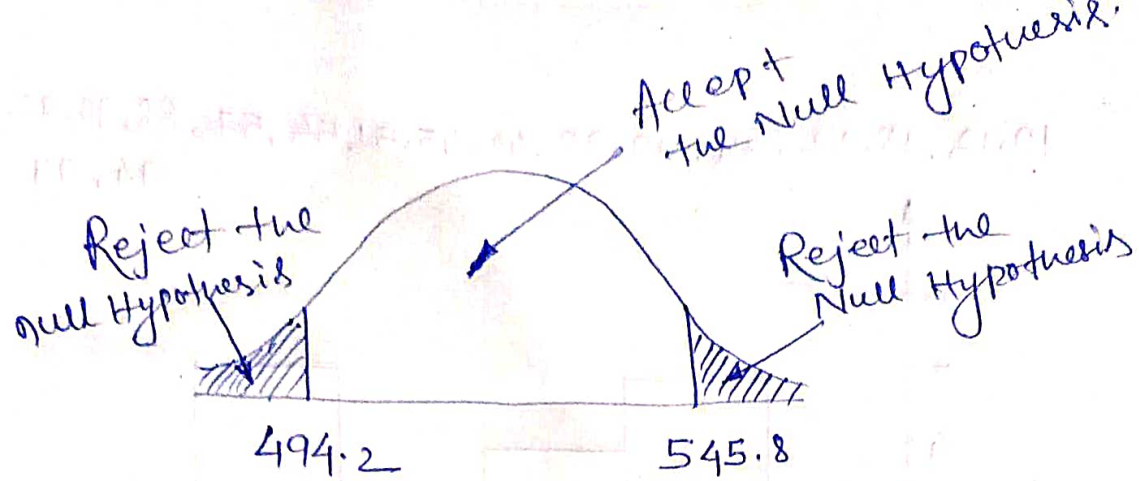 Accept
the Null Hypothesis.
Reject the
Null Hypothesis
Reject the
Null Hypothesis
494.2
545.8